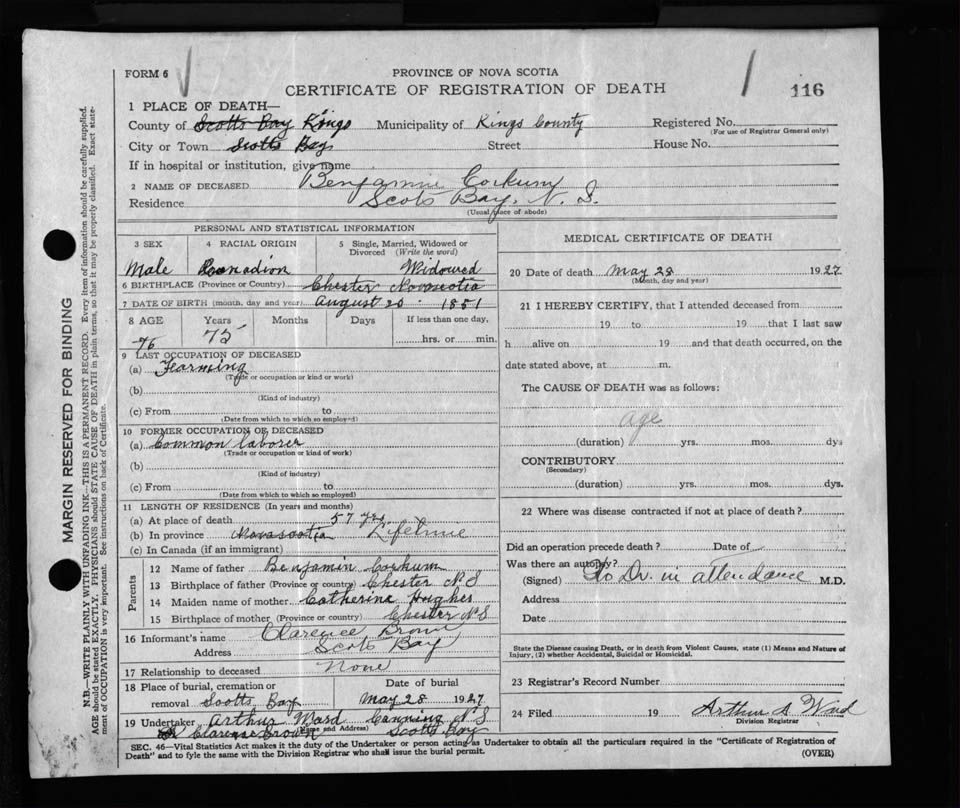 FORM 6
PROVINCE OF NOVA SCOTIA
CERTIFICATE OF REGISTRATION OF DEATH
116
1 PLACE OF DEATH—
County of Scotts Bay Kings Municipality of Kings County Registered No.
(For use of Registrar General only)
City or Town Scotts Bay Street House No.
If in hospital or institution, give name
2 NAME OF DECEASED Benjamin Corkum
Residence Scots Bay, N. S.
(Usual place of abode)
PERSONAL AND STATISTICAL INFORMATION
3 SEX 4 RACIAL ORIGIN 5 Single, Married, Widowed or Divorced (Write the word)
Male Canadion Widowed
6 BIRTHPLACE (Province or Country) Chester Novascotia
7 DATE OF BIRTH (month, day and year) August 20 1851
8 AGE Years Months Days If less than one day,
76 75 hrs. or min.
9 LAST OCCUPATION OF DECEASED
(a) Fearming
(Trade or occupation or kind of work)
(b)
(Kind of industry)
(c) From to
(Date from which to which so employed)
10 FORMER OCCUPATION OF DECEASED
(a) Common laborer
(Trade or occupation or kind of work)
(b)
(Kind of industry)
(c) From to
(Date from which to which so employed)
11 LENGTH OF RESIDENCE (In years and months)
(a) At place of death 57 yr.
(b) In province Novascotia Lifetime
(c) In Canada (if an immigrant)
Parents
12 Name of father Benjamin Corkum
13 Birthplace of father (Province or country) Chester N.S
14 Maiden name of mother Catherine Hughes
15 Birthplace of mother (Province or country) Chester N.S
16 Informant's name Clarence Brown
Address Scots Bay
17 Relationship to deceased None
18 Place of burial, cremation or removal Date of burial
Scotts Bay May 28 1927
19 Undertaker Arthur Ward Canning N S
(Name and Address)
Clarence Brown Scotts Bay
MEDICAL CERTIFICATE OF DEATH
20 Date of death May 28 1927
(Month, day and year)
21 I HEREBY CERTIFY, that I attended deceased from
19 to 19 that I last saw
h alive on 19 and that death occurred, on the
date stated above, at m.
The CAUSE OF DEATH was as follows:
age
(duration) yrs. mos. dys
CONTRIBUTORY
(Secondary)
(duration) yrs. mos. dys.
22 Where was disease contracted if not at place of death?
Did an operation precede death? Date of
Was there an autopsy?
(Signed) No Dr. in attendance M.D.
Address
Date
State the Disease causing Death, or in death from Violent Causes, state (1) Means and Nature of
Injury, (2) whether Accidental, Suicidal or Homicidal.
23 Registrar's Record Number
24 Filed 19 Arthur A Ward
Division Registrar
SEC. 46—Vital Statistics Act makes it the duty of the Undertaker or person acting as Undertaker to obtain all the particulars required in the "Certificate of Registration of
Death" and to fyle the same with the Division Registrar who shall issue the burial permit. (OVER)
MARGIN RESERVED FOR BINDING
N.B.—WRITE PLAINLY WITH UNFADING INK—THIS IS A PERMANENT RECORD. Every item of information should be carefully supplied.
AGE should be stated EXACTLY. PHYSICIANS should STATE CAUSE OF DEATH in plain terms, so that it may be properly classified. Exact state-
ment of OCCUPATION is very important. See instructions on back of Certificate.